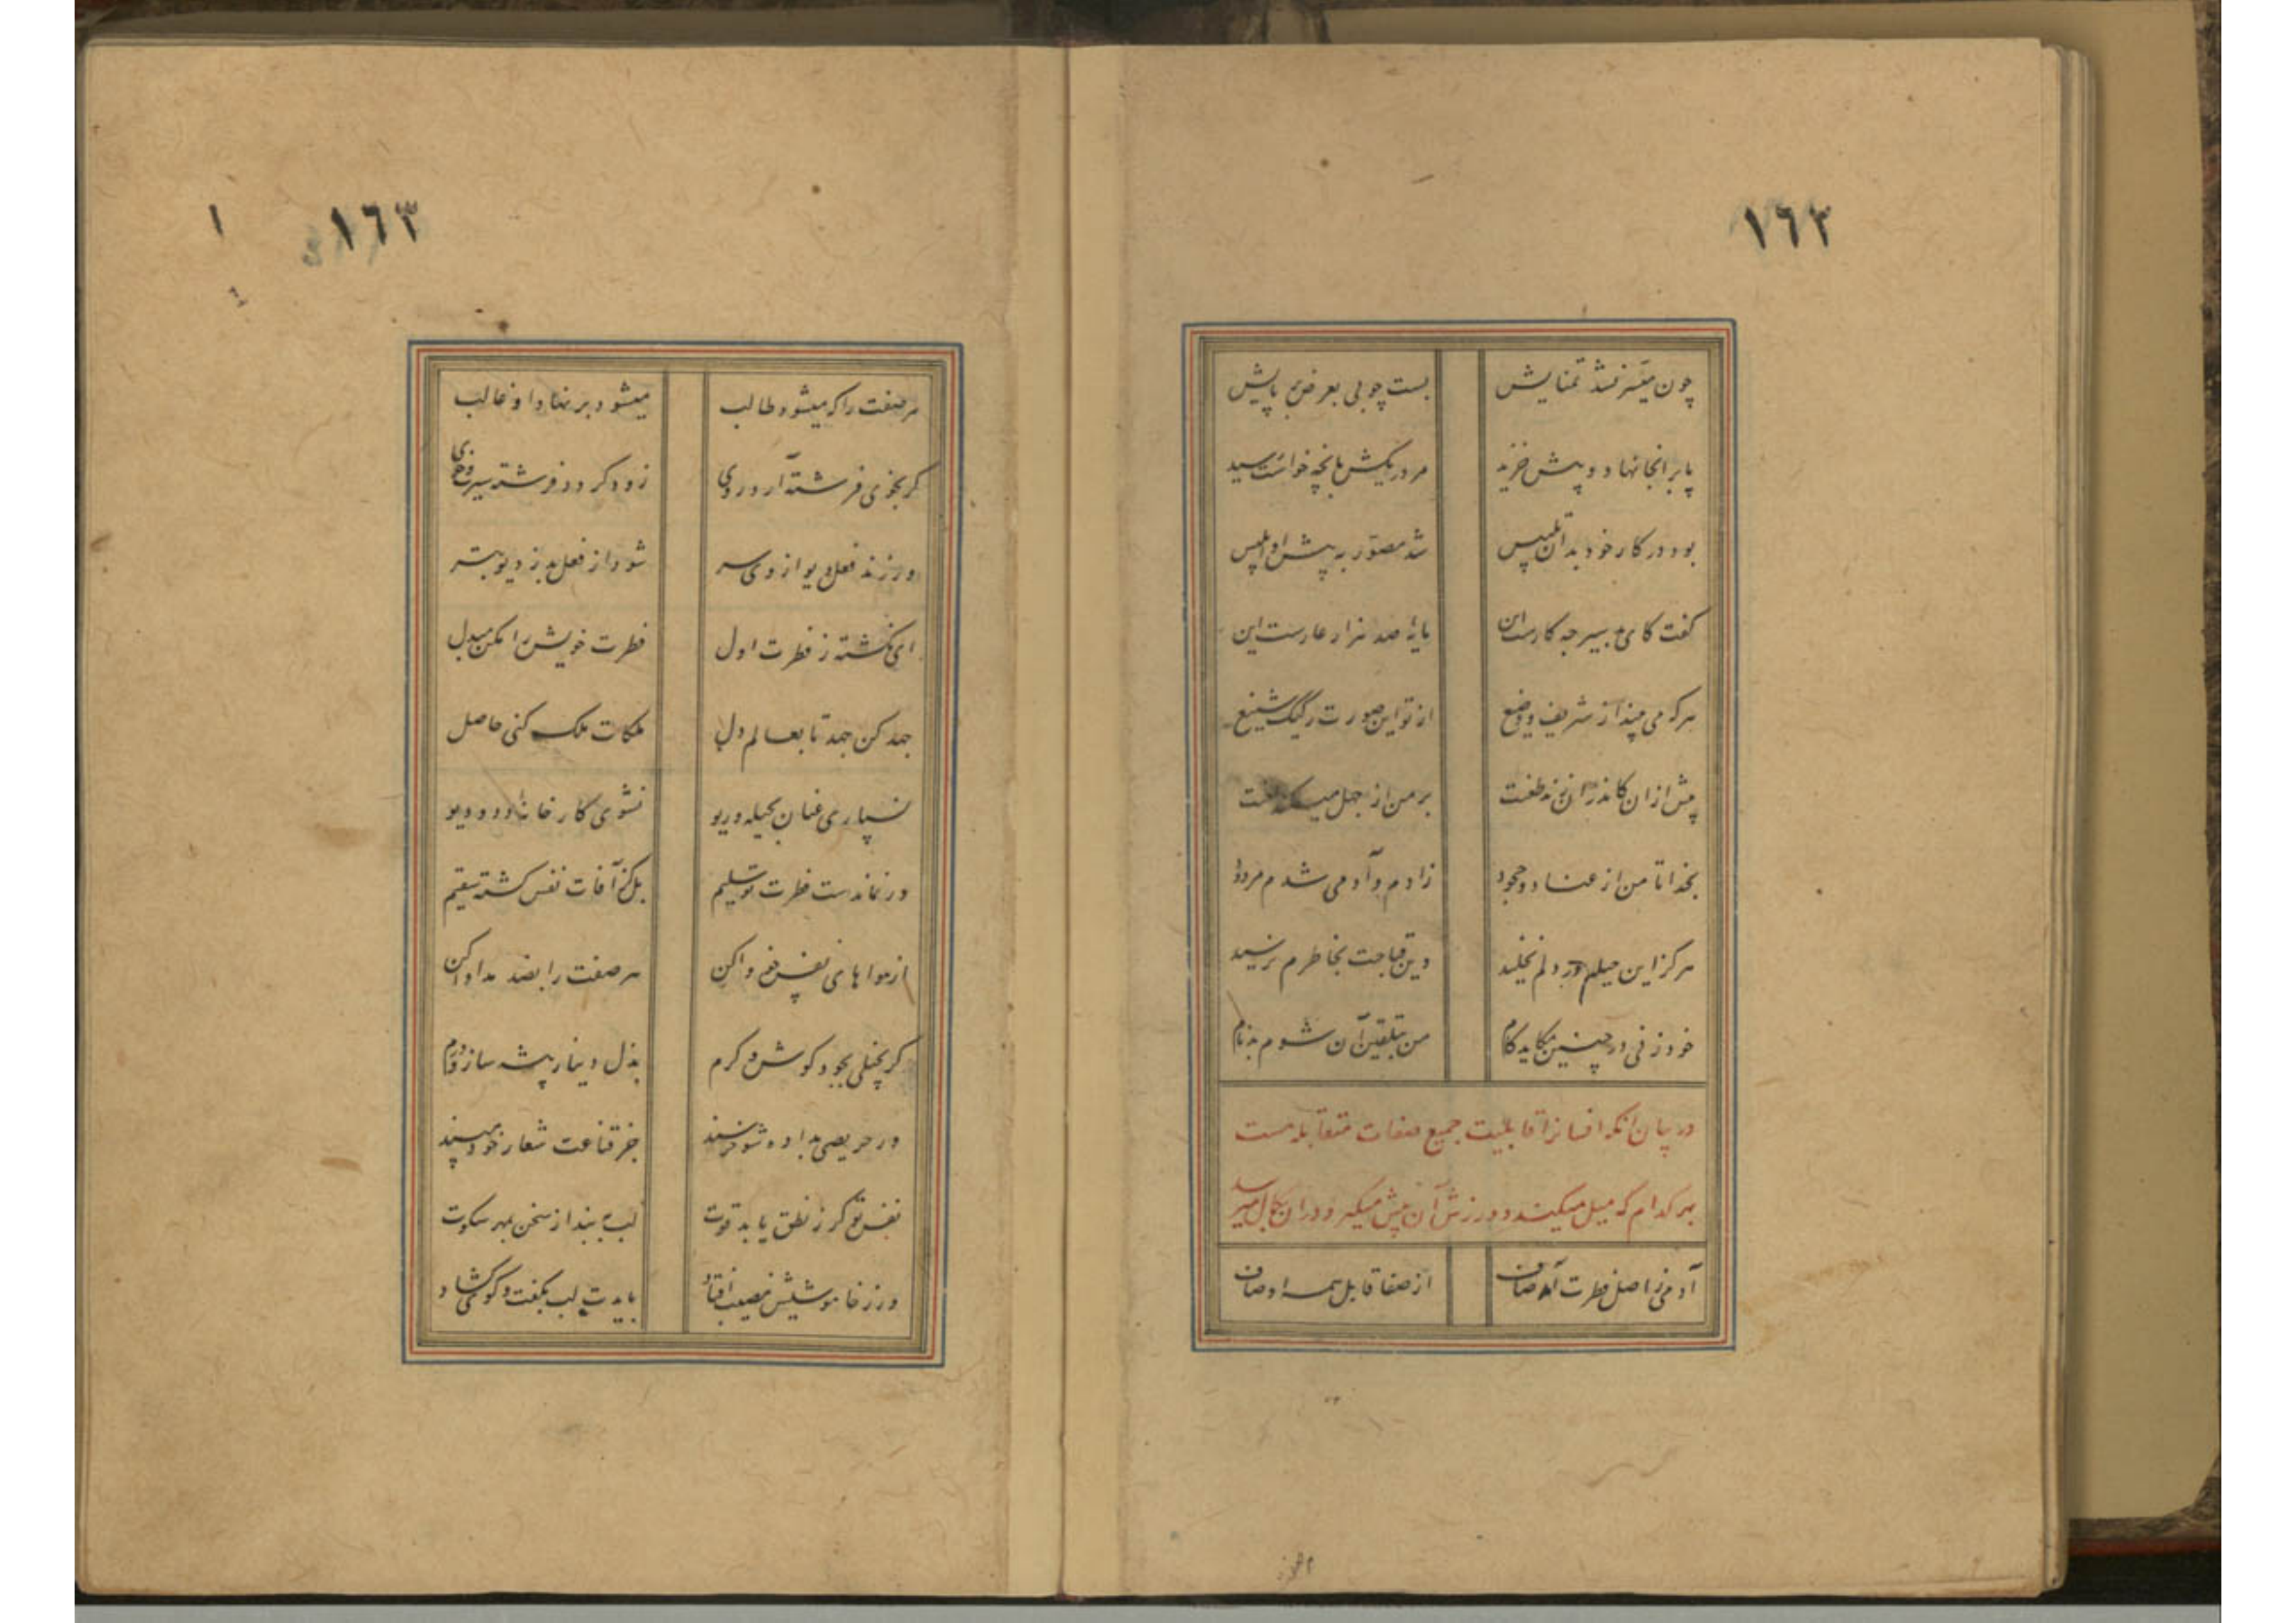 ١٦٢
چون میسر نشد تمنایش بست چوبی بعرض بر پایش
پا بر انجا نهاد و پیش خزید مرد ریکش بانچه خواست رسید
بود در کار خود بدان تلبیس شد مصور به پیش او ابلیس
گفت کای بی سیر چه کارست این مایهٔ صد هزار عارست این
هر که می بیند از شریف و وضیع از تو این صورت رکیک شنیع
پیش از ان کاندران زند طعنت بر من از جهل میکند لعنت
بخدا تا من از عناد و جحود زادم و آدمی شدم مردود
هرگز این حیلم در دلم نخلید وین قباحت بخاطرم نرسید
خود زنی در چنین مکاید کام من بتلقین آن شوم بدنام
در بیان انکه انسانرا قابلیت جمیع صفات متقابله هست
بهر کدام که میل میکند و ورزش آن پیش میگیرد در ان بکمال میرسد
آدمی ز اصل فطرت آمد صاف از صفا قابل همه اوصاف
١٦٣
١
هر صفت را که میشود طالب میشود بر نهاد او غالب
کر بخوی فرشته آرد روی زود کردد فرشته سیرت و خوی
ور زند فعل دیو از وی سر شود از فعل بد ز دیو بتر
ای نگشته ز فطرت اول فطرت خویش را مکن مبدل
جهد کن جهد تا بعالم دل ملکات ملک کنی حاصل
نسپاری عنان بحیله و ریو نشوی کارخانهٔ دد و دیو
ور نماندست فطرت تو سلیم بلکز آفات نفس گشته سقیم
از هواهای نفس خو وا کن هر صفت را بضد مداوا کن
کر بخیلی بجود کوش و کرم بذل دینار پیشه ساز و درم
ور حریصی بداده شو خرسند جز قناعت شعار خود مپسند
نفس تو کر ز نطق یابد قوت لب ببند از سخن بمهر سکوت
ور ز خاموشیش نصیب افتاد بایدت لب بگفت و گوی گشاد